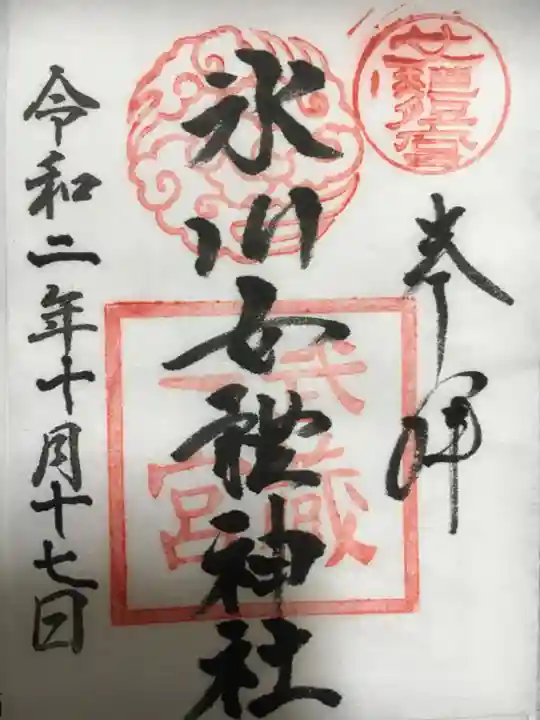 奉拝
氷川女體神社
武蔵
一宮
令和二年十月十七日